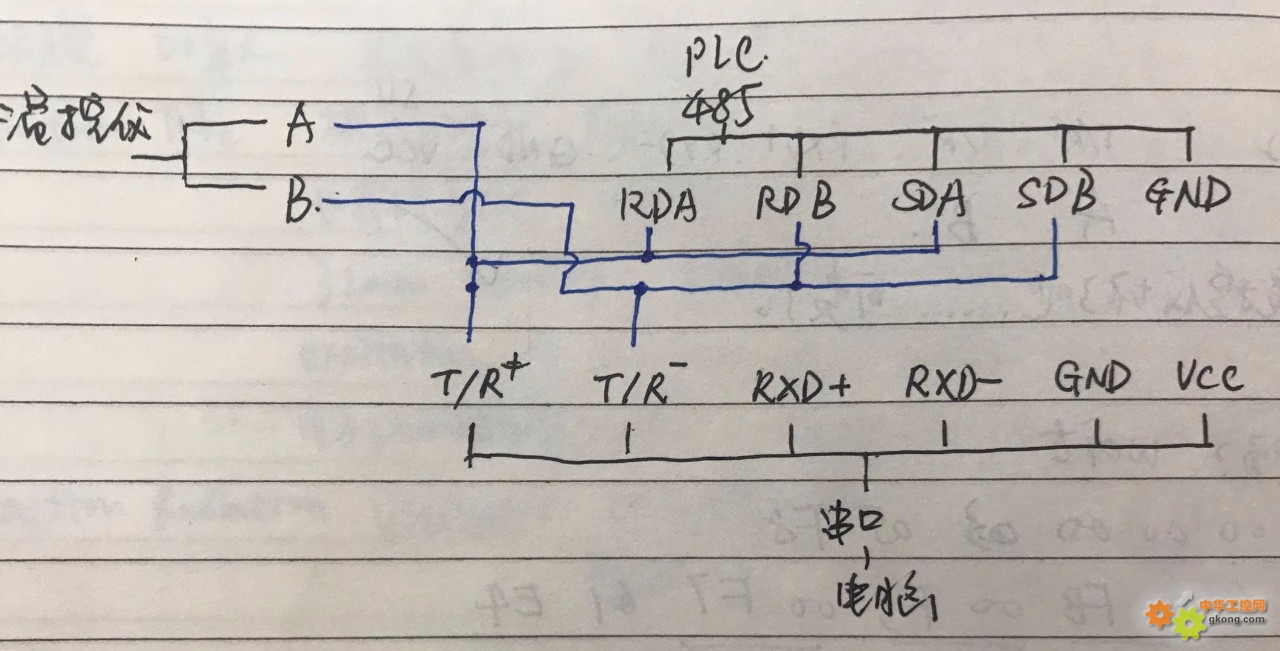 PLC.
485
温控仪
A
B.
RDA RDB SDA SDB GND
T/R+ T/R- RXD+ RXD- GND VCC
串口
电脑
中华工控网
gkong.com